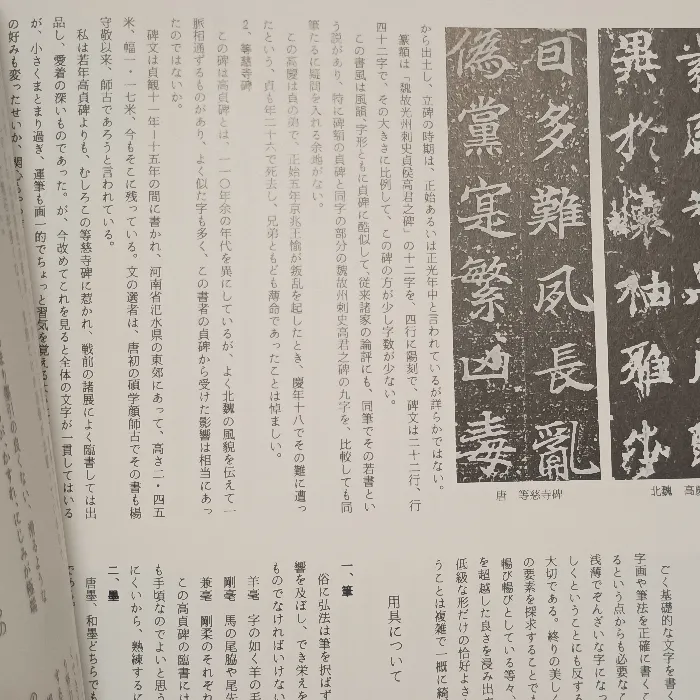 異於
袖雅
曰多難夙長亂
偽黨寔繁凶毒
北魏　高慶
唐　等慈寺碑
から出土し、立碑の時期は、正始あるいは正光年中と言われているが詳らかではない。
篆額は「魏故光州刺史貞侯高君之碑」の十二字を、四行に陽刻で、碑文は二十二行、行
四十二字で、その大きさに比例して、この碑の方が少し字数が少ない。
この書風は風韻、字形ともに貞碑に酷似して、従来諸家の論評にも、同筆でその若書とい
う説があり、特に碑額の貞碑と同字の部分の魏故州刺史高君之碑の九字を、比較しても同
筆たるに疑問を入れる余地がない。
この高慶は貞の弟で、正始五年京兆王愉が叛乱を起したとき、慶年十八でその難に遭っ
たという、貞も年二十六で死去し、兄弟ともども薄命であったことは悼ましい。
2、等慈寺碑
この碑は高貞碑とは、一一〇年余の年代を異にしているが、よく北魏の風貌を伝えて一
脈相通ずるものがあり、よく似た字も多く、この書者の貞碑から受けた影響は相当にあっ
たのではないか。
碑文は貞観十一年―十五年の間に書かれ、河南省氾水県の東郊にあって、高さ二・四五
米、幅一・一七米、今もそこに残っている。文の選者は、唐初の碩学顔師古でその書も楊
守敬以来、師古であろうと言われている。
私は若年高貞碑よりも、むしろこの等慈寺碑に惹かれ、戦前の諸展によく臨書しては出
品し、愛着の深いものであった。が、今改めてこれを見ると全体の文字が一貫してはいる
が、小さくまとまり過ぎ、運筆も画一的でちょっと習気を覚える
の好みも変ったせいか、
ごく基礎的な文字を書く
字画や筆法を正確に書く
るという点からも必要な
浅薄でぞんざいな字にな
しくということにも反する
大切である。終りの美し
の要素を探求することで
暢び暢びとしている等々、
を超越した良さを浸み出
低級な形だけの恰好よさ
うことは複雑で一概に綺
用具について
一、筆
俗に弘法は筆を択ばず
響を及ぼし、でき栄えを
ものでなければいけない
羊毫　字の如く羊の毛
剛毫　馬の尾脇や尾先
兼毫　剛柔のそれぞれ
この高貞碑の臨書には
も手頃なのでよいと思う
にくいから、熟練するに
二、墨
唐墨、和墨どちらでも